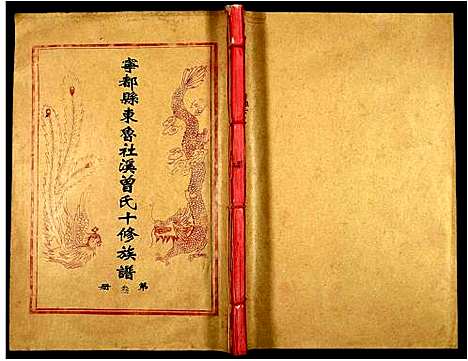 寧都縣東魯社溪曾氏十修族譜
第叁册